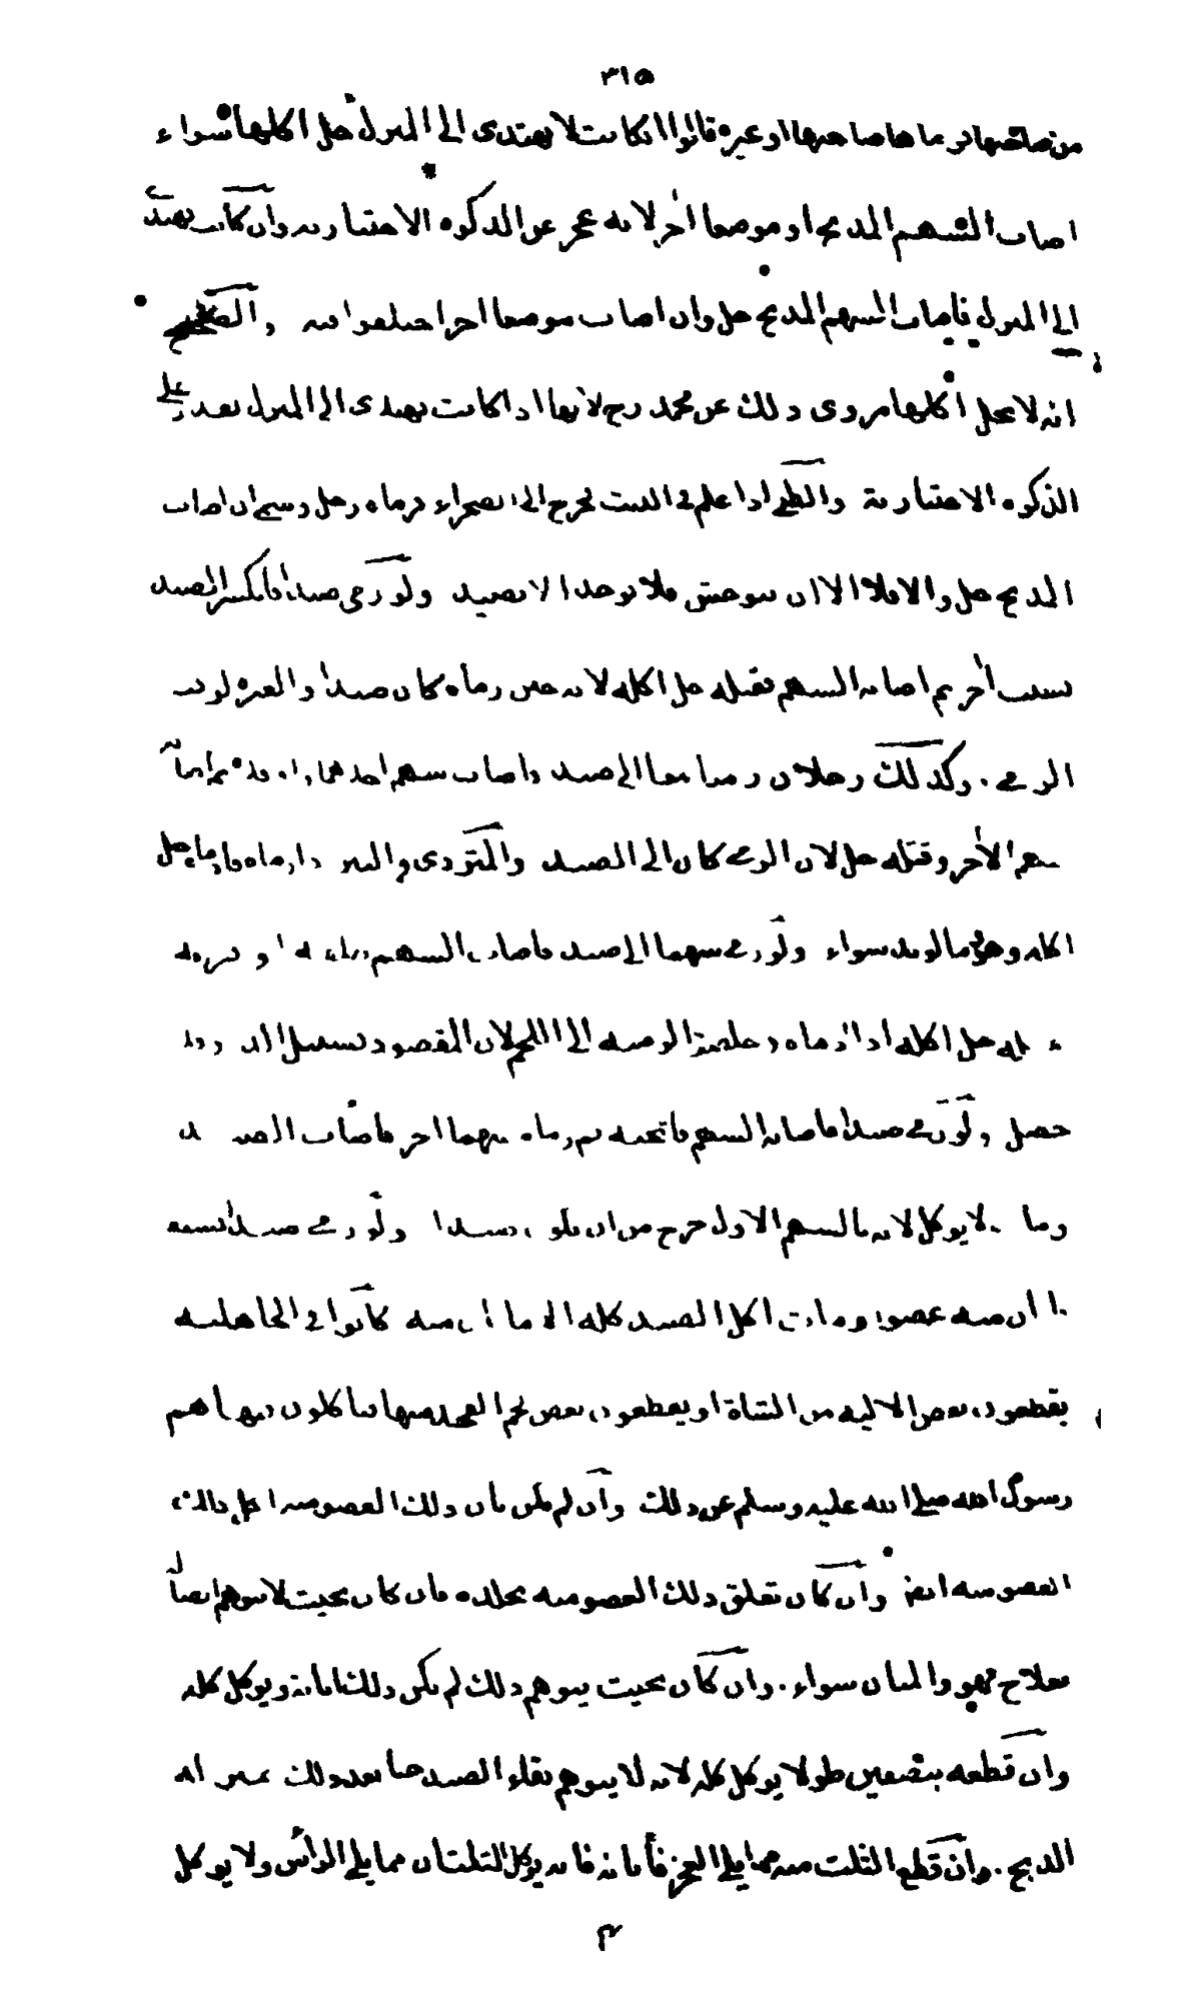 ٣١٥
من صاحبها فرماها صاحبها او غيره قالوا ان كانت لا تهتدى الى المنزل حل اكلها سواء
اصاب السهم المذبح او موضعا اخر لانه عجز عن الذكوة الاختيارية وان كانت تهتدى
الى المنزل فاصاب السهم المذبح حل وان اصاب موضعا اخر اختلفوا فيه والصحيح
انه لا يحل اكلها مروى ذلك عن محمد رح لانها اذا كانت تهتدى الى المنزل يقدر على
الذكوة الاختيارية والظبى اذا علم فى البيت فخرج الى الصحراء فرماه رجل وسمى ان اصاب
المذبح حل والا فلا الا ان يتوحش فلا يوخذ الا بصيد ولو رمى صيدا فانكسر الصيد
بسبب اخر ثم اصابه السهم فقتله حل اكله لانه حين رماه كان صيدا والعبرة لوقت
الرمى . وكذلك رجلان رميا معا الى صيد واصاب سهم احدهما ثم اصابه
سهم الاخر وقتله حل لان الرمى كان الى الصيد والمتردى فى البير اذا رماه فادماه حل
اكله وهو مالو ند سواء ولو رمى سهما الى صيد فاصاب السهم او قرنه
حل اكله اذا ادماه وخلصت الرمية الى اللحم لان المقصود تسييل الدم وقد
حصل ولو رمى صيدا فاصابه السهم فاثخنه ثم رماه سهما اخر فاصاب الصيد
ومات لا يوكل لانه بالسهم الاول خرج من ان يكون صيدا ولو رمى صيدا بسيف
فابان منه عضوا ومات اكل الصيد كله الا ما ابان منه كانوا فى الجاهلية
يقطعون بعض الالية من الشاة او يقطعون بعض لحم العجز منها فياكلون فنهاهم
رسول الله صلى الله عليه وسلم عن ذلك وان لم يكن بان ذلك العضو منه اكل ذلك
العضو منه ايضا وان كان تعلق ذلك العضو منه بجلده فان كان بحيث لا يتوهم اتصاله
بعلاج فهو والمبان سواء . وان كان بحيث يتوهم ذلك لم يكن ذلك ابانة ويوكل كله
وان قطعه بنصفين طولا يوكل كله لانه لا يتوهم بقاء الصيد حيا بعد ذلك
الذبح . وان قطع الثلث منه مما يلى العجز فأبانه فانه يوكل الثلثان مما يلى الرأس ولا يوكل